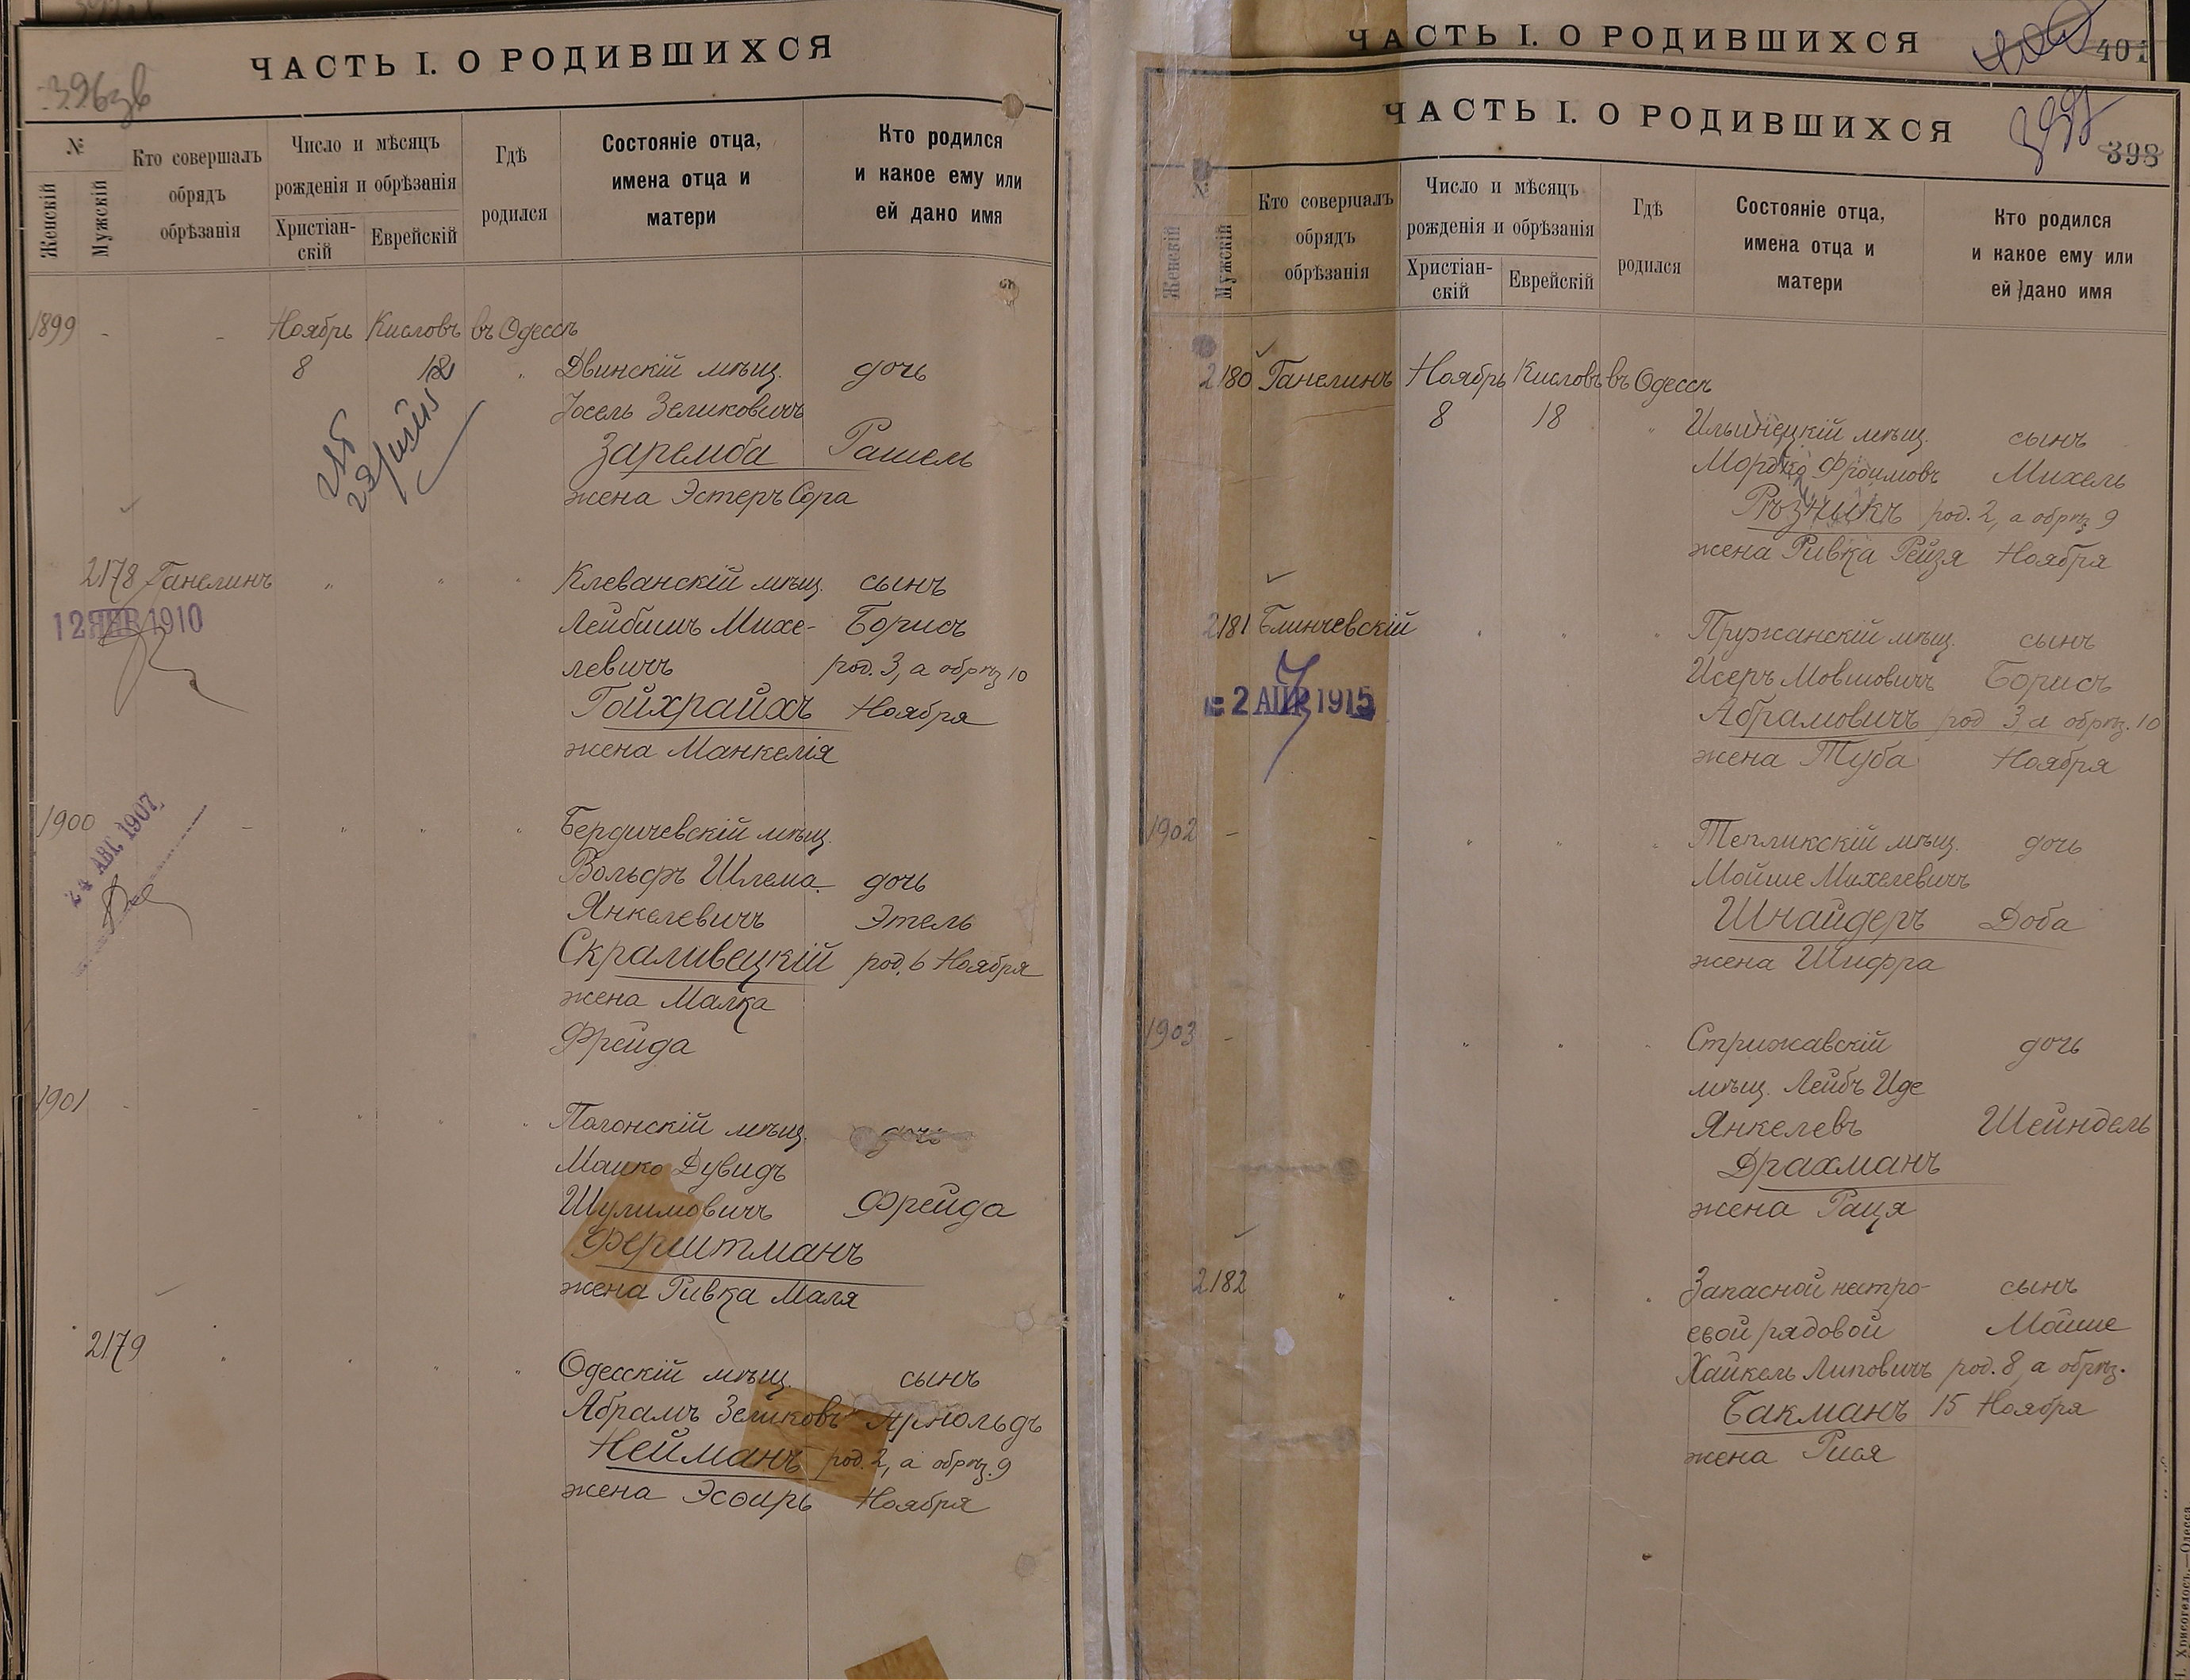 ЧАСТЬ I. О РОДИВШИХСЯ
№
Женскій
Мужскій
Кто совершалъ
обрядъ
обрѣзанія
Число и мѣсяцъ
рожденія и обрѣзанія
Христіан-
скій
Еврейскій
Гдѣ
родился
Состояніе отца,
имена отца и
матери
Кто родился
и какое ему или
ей дано имя
1899 - - Ноябрь Кисловъ въ Одессѣ
8 18 " Двинскій мѣщ. дочь
Іосель Зеликовичъ
Заремба Рашель
жена Эстеръ Сора
2178 Ганелинъ " " " Клеванскій мѣщ. сынъ
12 ЯНВ 1910
Лейбишъ Михе- Борисъ
левичъ род. 3, а обрѣз 10
Гойхрайхъ Ноября
жена Манкелія
1900 - " " " Бердичевскій мѣщ.
24 АВГ. 1907
Вольфъ Шлема дочь
Янкелевичъ Этель
Скраливецкій род. 6 Ноября
жена Малка
Фрейда
1901 - - " " " Полонскій мѣщ. дочь
Машко Дувидъ
Шулимовичъ Фрейда
Ферштманъ
жена Ривка Маля
2179 " " " " Одесскій мѣщ. сынъ
Абрамъ Зеликовъ Арнольдъ
Нейманъ род. 2, а обрѣз. 9
жена Эсѳирь Ноября
ЧАСТЬ I. О РОДИВШИХСЯ
401
ЧАСТЬ I. О РОДИВШИХСЯ
398
№
Женскій
Мужскій
Кто совершалъ
обрядъ
обрѣзанія
Число и мѣсяцъ
рожденія и обрѣзанія
Христіан-
скій
Еврейскій
Гдѣ
родился
Состояніе отца,
имена отца и
матери
Кто родился
и какое ему или
ей дано имя
2180 Ганелинъ Ноябрь Кисловъ въ Одессѣ
8 18 " Ильинецкій мѣщ. сынъ
Мордко Фроимовъ Михель
Рѣзникъ род. 2, а обрѣз 9
жена Ривка Рейзя Ноября
2181 Блинчевскій " " " Пружанскій мѣщ. сынъ
Исеръ Мовшовичъ Борисъ
2 АПР 1915
Абрамовичъ род 3, а обрѣз. 10
жена Туба Ноября
1902 - - " " " Тепликскій мѣщ. дочь
Мойше Михелевичъ
Шнайдеръ Доба
жена Шифра
1903 - - " " " Стрижавскій дочь
мѣщ. Лейбъ Иде
Янкелевъ Шейндель
Драхманъ
жена Раця
2182 " " " " Запасной нестро-
сынъ
евой рядовой Мойше
Хайкель Липовичъ род. 8, а обрѣз.
Бакманъ 15 Ноября
жена Рися